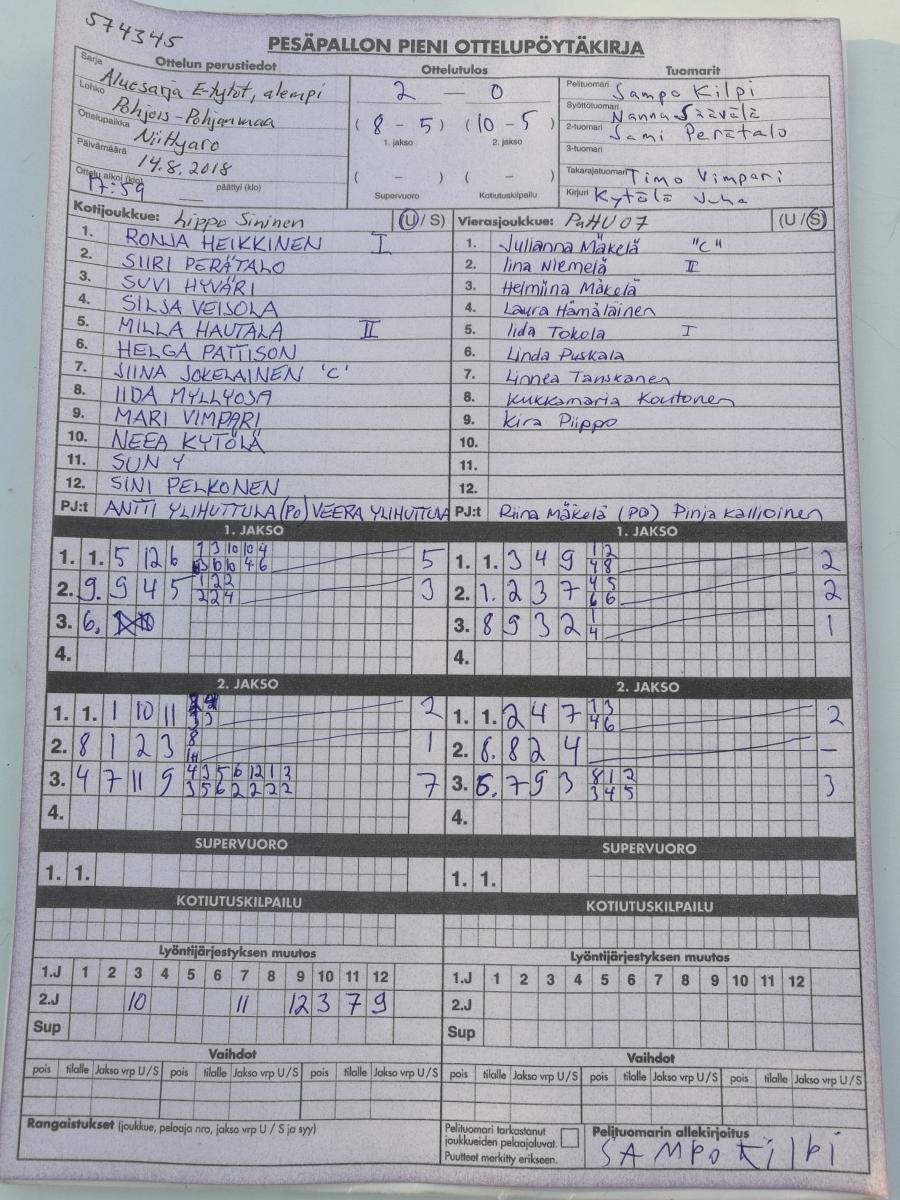 574345
PESÄPALLON PIENI OTTELUPÖYTÄKIRJA
Ottelun perustiedot
Ottelutulos
Tuomarit
Sarja Aluesarja E-tytöt, alempi
Lohko Pohjois-Pohjanmaa
Ottelupaikka Niittyaro
Päivämäärä 14.8.2018
Ottelu alkoi (klo) 17:59 päättyi (klo)
2 — 0
(8 - 5) (10 - 5)
1. jakso 2. jakso
( - ) ( - )
Supervuoro Kotiutuskilpailu
Pelituomari Sampo Kilpi
Syöttötuomari Nanna Säävälä
2-tuomari Sami Perätalo
3-tuomari
Takarajatuomari Timo Vimpari
Kirjuri Kytölä Juha
Kotijoukkue: Lippo Sininen (U/S)
1. RONJA HEIKKINEN I
2. SIIRI PERÄTALO
3. SUVI HYVÄRI
4. SILJA VEISOLA
5. MILLA HAUTALA II
6. HELGA PATTISON
7. JIINA JOKELAINEN 'C'
8. IIDA MYLLYOJA
9. MARI VIMPARI
10. NEEA KYTÖLÄ
11. SUN Y
12. SINI PELKONEN
PJ:t ANTTI YLIHUTTULA (PO) VEERA YLIHUTTULA
Vierasjoukkue: PaHU 07 (U/S)
1. Julianna Mäkelä "C"
2. Iina Niemelä II
3. Helmiina Mäkelä
4. Laura Hämäläinen
5. Iida Tokola I
6. Linda Puskala
7. Linnea Tanskanen
8. Kukkamaria Koutonen
9. Kira Piippo
10.
11.
12.
PJ:t Riina Mäkelä (PO) Pinja Kallioinen
1. JAKSO
1. 1. 5 12 6 5
2. 9. 9 4 5 1 2 2 3
2 2 4
3. 6.
4.
1. JAKSO
1. 1. 3 4 9 1 2 2
4 8
2. 1. 2 3 7 4 5 2
6 6
3. 8 9 3 2 1 1
4
4.
2. JAKSO
1. 1. 1 10 11 2
3 3
2. 8 1 2 3 8 1
3. 4 7 11 9 4 3 5 6 12 1 3 7
3 5 6 2 2 2 2
4.
2. JAKSO
1. 1. 2 4 7 1 3 2
4 6
2. 8. 8 2 4 –
3. 6. 7 9 3 8 1 2 3
3 4 5
4.
SUPERVUORO
1. 1.
SUPERVUORO
1. 1.
KOTIUTUSKILPAILU
KOTIUTUSKILPAILU
Lyöntijärjestyksen muutos
1.J 1 2 3 4 5 6 7 8 9 10 11 12
2.J 10 11 12 3 7 9
Sup
Lyöntijärjestyksen muutos
1.J 1 2 3 4 5 6 7 8 9 10 11 12
2.J
Sup
Vaihdot
pois tilalle Jakso vrp U/S pois tilalle Jakso vrp U/S pois tilalle Jakso vrp U/S
Vaihdot
pois tilalle Jakso vrp U/S pois tilalle Jakso vrp U/S pois tilalle Jakso vrp U/S
Rangaistukset (joukkue, pelaaja nro, jakso vrp U / S ja syy)
Pelituomari tarkastanut
joukkueiden pelaajaluvat.
Puutteet merkitty erikseen.
Pelituomarin allekirjoitus
SAMPO KILPI